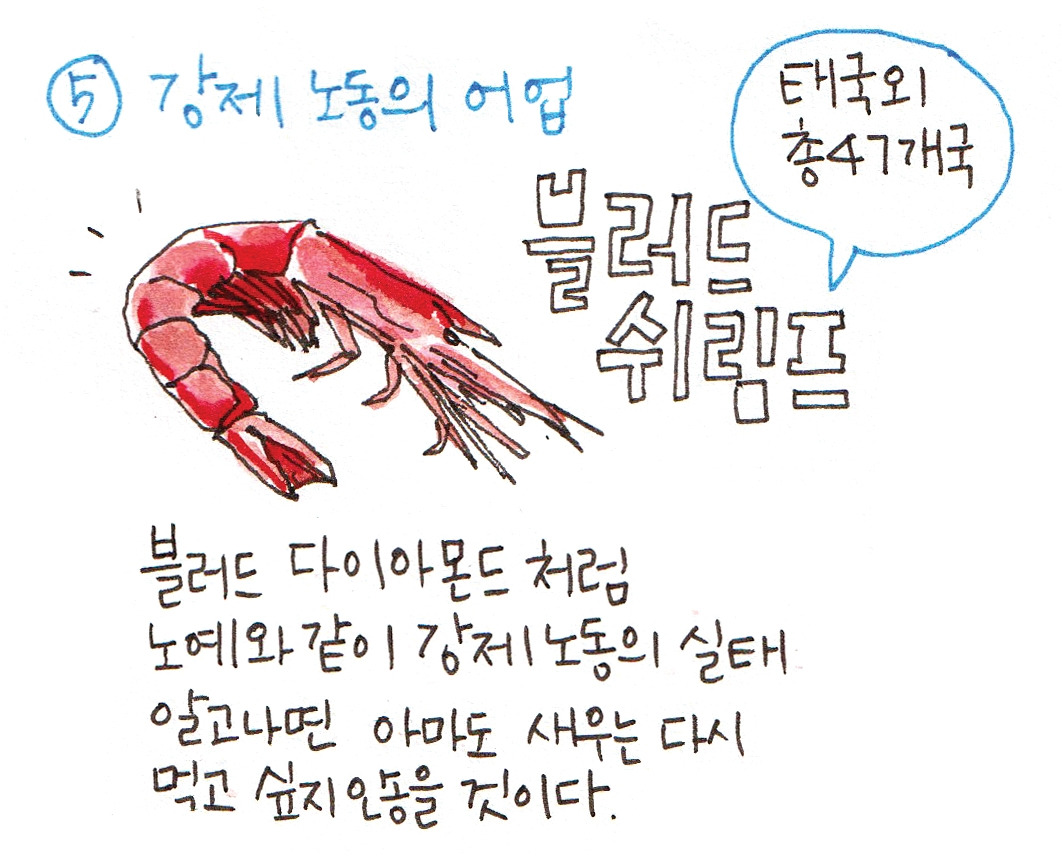 ⑤ 강제 노동의 어업
태국외
총47개국
블러드
쉬림프
블러드 다이아몬드 처럼
노예와 같이 강제노동의 실태
알고나면 아마도 새우는 다시
먹고 싶지 않을 것이다.